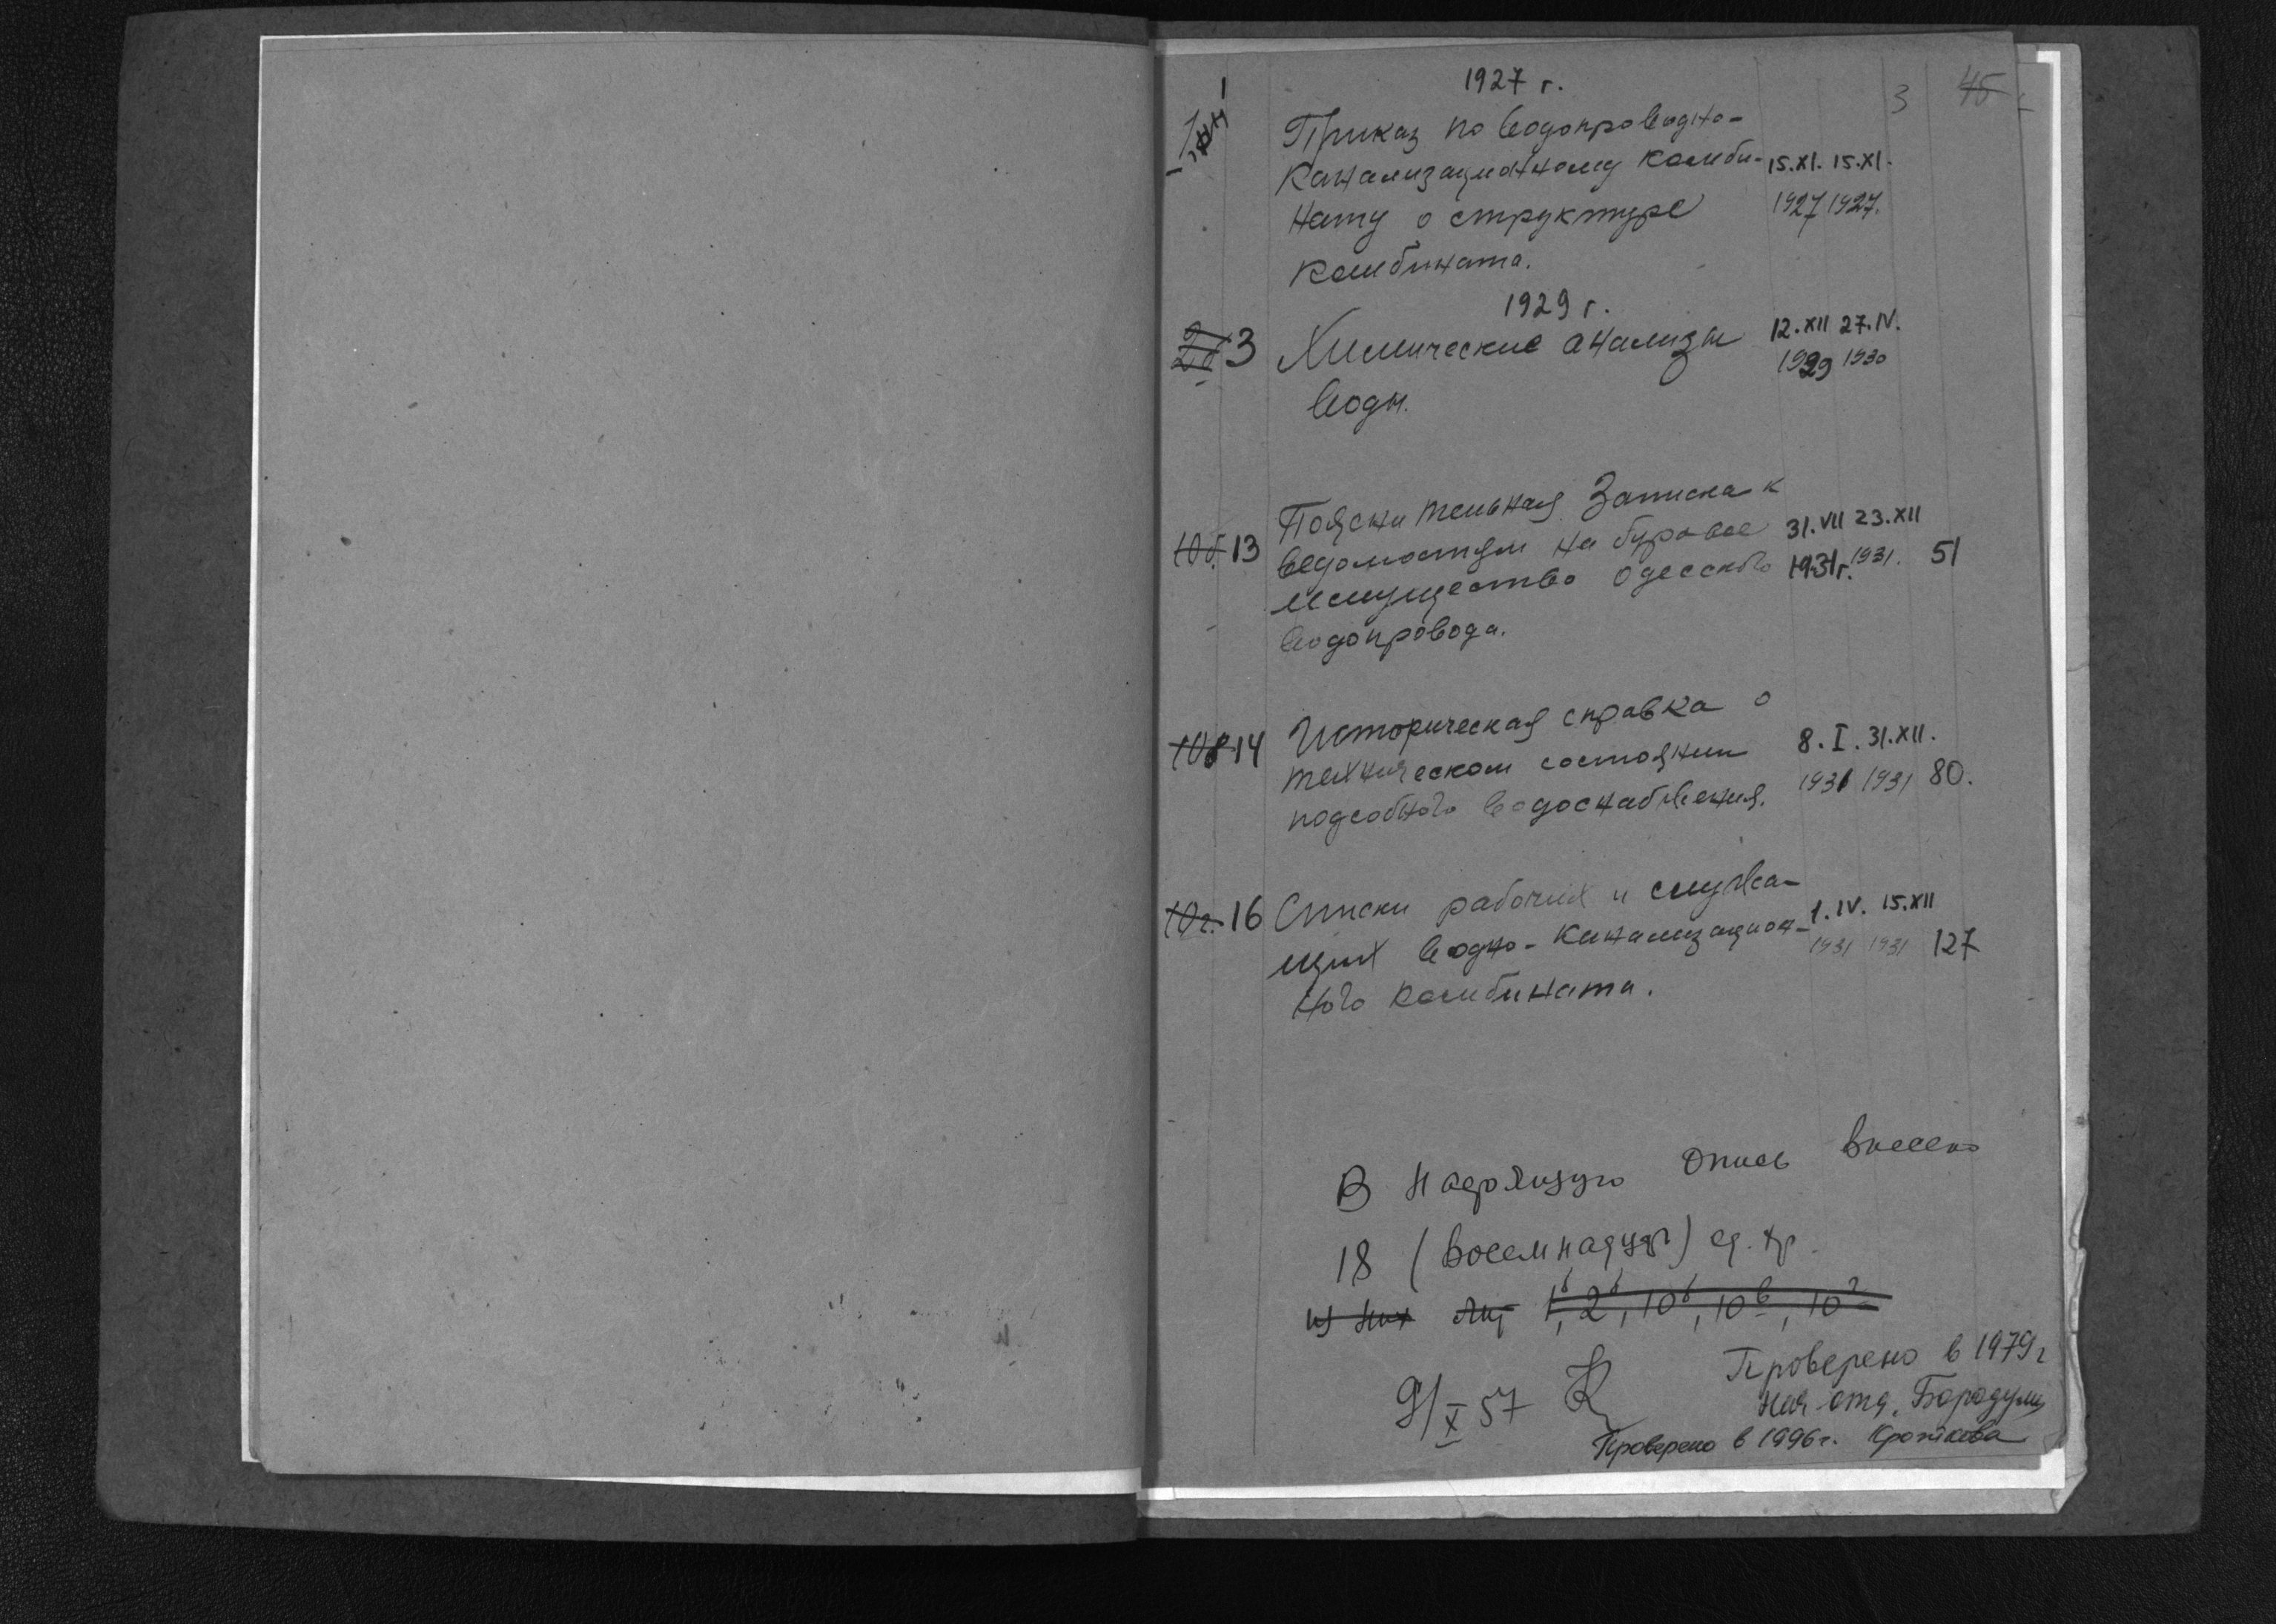 1927 г.
3 45
1 Приказ по водопроводно-
канализационному комби- 15.XI. 15.XI.
нату о структуре 1927 1927.
комбината.
1929 г.
2б 3 Химические анализы 12.XII 27.IV.
воды. 1929 1930
Пояснительная Записка к
10б. 13 ведомостям на буровое 31.VII 23.XII
имущество Одесского 1931г. 1931. 51
водопровода.
10в 14 Историческая справка о
техническом состоянии 8.I. 31.XII.
подсобного водоснабжения. 1931 1931 80.
10г. 16 Списки рабочих и служа-
щих водно-канализацион- 1.IV. 15.XII
ного комбината. 1931 1931 127
В настоящую опись внесено
18 (восемнадцать) ед. хр.
из них лит 1б, 2б, 10б, 10в, 10г
9/X 57
Проверено в 1979г
нач отд.
Проверено в 1996г. Кроткова